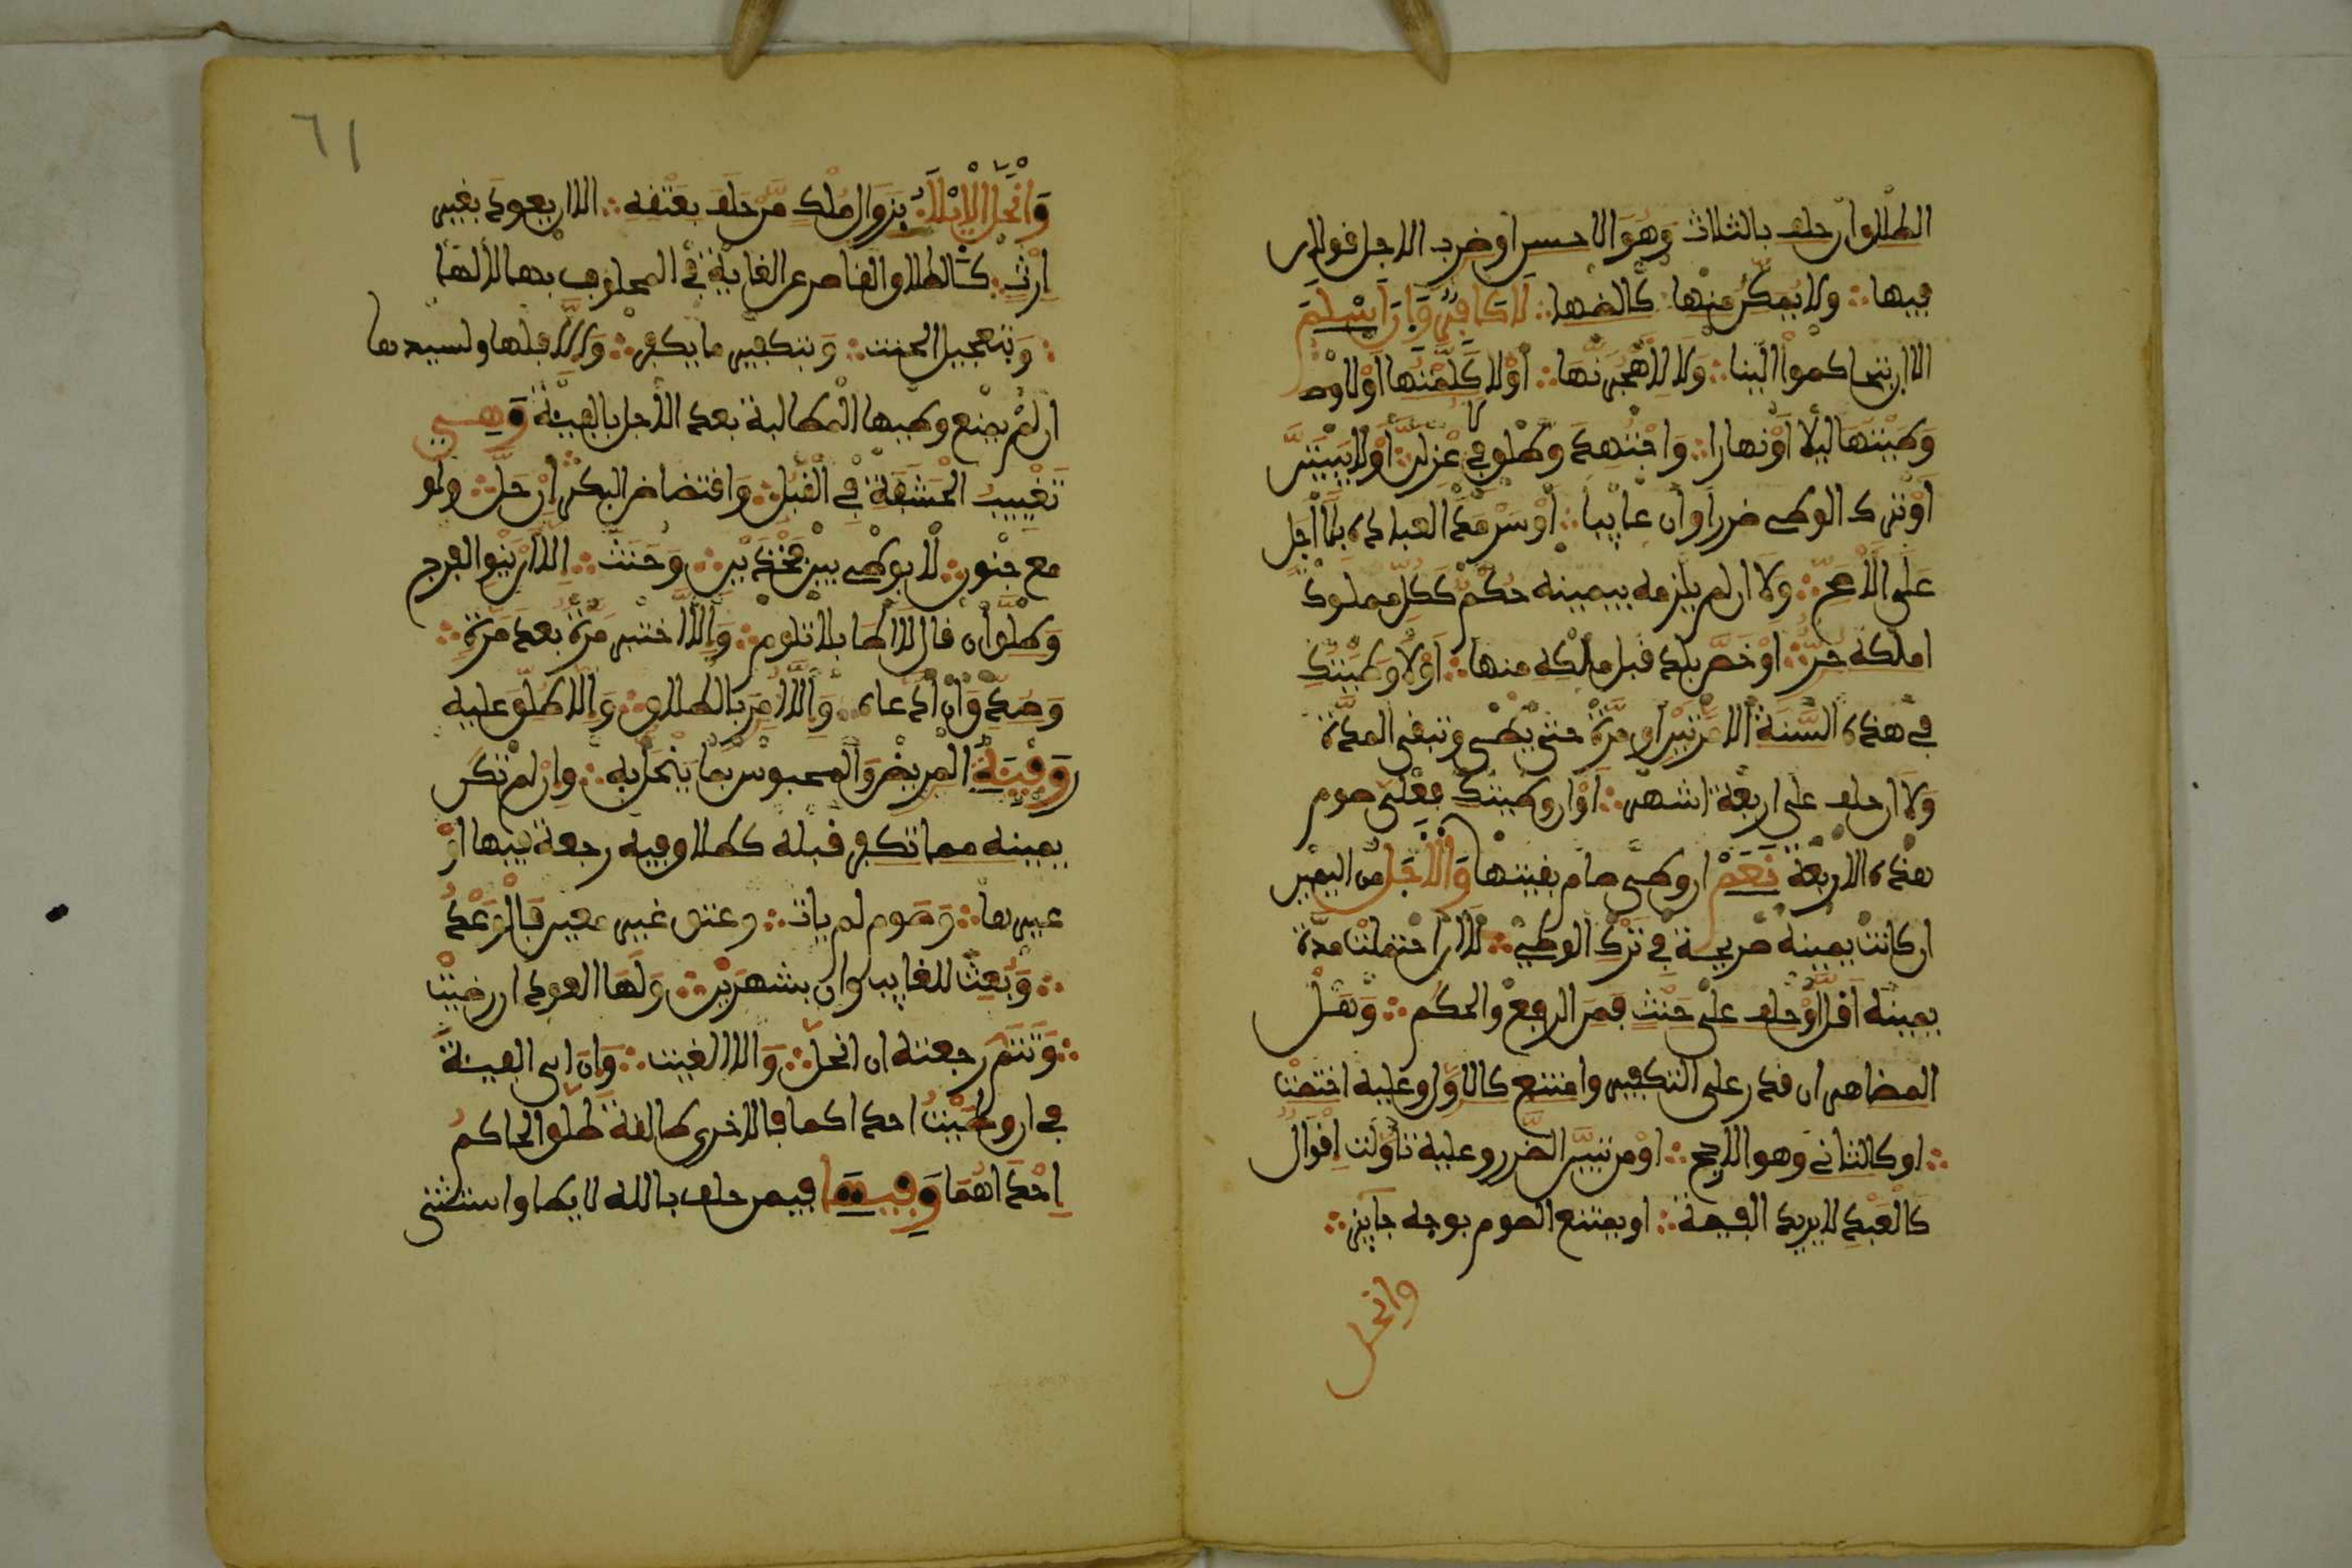 الطلاق ان حلف بالثلاث وهو الاحسن او ضرب الاجل قولان
فيها ولا يمكن منها كالظهار لا كافر وان اسلم
الا ان يتحاكموا الينا ولا لاهجرنها او لا كلمتها او لا وط
وطيتها ليلا او نهارا واجتهد وطلق في لاعزلن او لا يبيتن
او ترك الوطى ضررا وان غايبا او سرمد العبادة بلا اجل
على الاصح ولا ان لم يلزمه بيمينه حكم ككل مملوك
املكه حر او خص بلدا قبل ملكه منها او لا وطيتك
في هذه السنة الا مرتين او مرة حتى يطى وتبقى المدة
ولا ان حلف على اربعة اشهر او ان وطيتك فعلى صوم
هذه الاربعة نعم ان وطى صام بقيتها والاجل من اليمين
ان كانت يمينه صريحة في ترك الوطى لا ان احتملت مدة
يمينه اقل او حلف على حنث فمن الرفع والحكم وهل
المظاهر ان قدر على التكفير وامتنع كالاول وعليه اختصرت
او كالثاني وهو الارجح او من تبين الضرر وعليه تاولت اقوال
كالعبد لا يريد الفيئة او يمنع الصوم بوجه جايز
وانحل
٦١
وانحل الايلا بزوال ملك من حلف بعتقه الا ان يعود بغير
ارث كالطلاق القاصر عن الغاية في المحلوف بها لا لها
وبتعجيل الحنث وبتكفير ما يكفر والا فلها ولسيدها
ان لم يمنع وطيها المطالبة بعد الاجل بالفيئة وهي
تغييب الحشفة في القبل وافتضاض البكر ان حل ولو
مع جنون لا بوطى بين فخذين وحنث الا ان ينوي الفرج
وطلق ان قال لا اطا بلا تلوم والا اختبر مرة بعد مرة
وصدق ان ادعاه والا امر بالطلاق والا طلق عليه
وفيئة المريض والمحبوس بما ينحل به وان لم تكن
يمينه مما تكفر قبله كطلاق فيه رجعة فيها او
غيرها وصوم لم يات وعتق غير معين فالوعد
وبعث للغايب وان بشهرين ولها العود ان رضيت
وتتم رجعته ان انحل والا الغيت وان ابى الفيئة
في ان وطيت احداكما فالاخرى طالق طلق الحاكم
احداهما وفيها فيمن حلف بالله لا يطا واستثنى